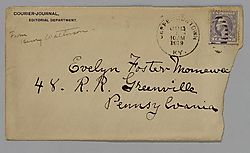 COURIER-JOURNAL,
EDITORIAL DEPARTMENT.
From
Henry Watterson
10 AM
1919
KY.
Evelyn Foster Momawee
48. R. R. Greenville
Pennsylvania